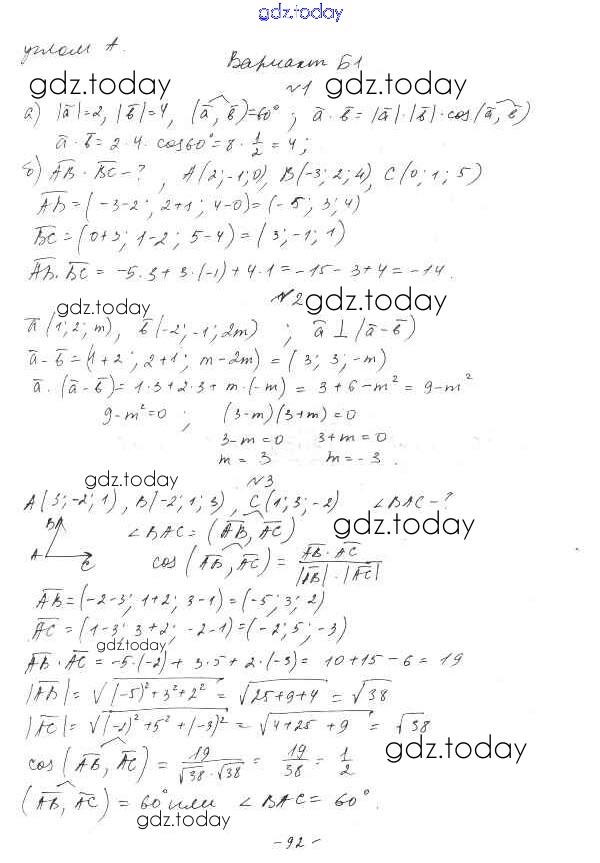 gdz.today
углом A.
Вариант Б1
gdz.today gdz.today
№1
а) |a̅|=2, |b̅|=4, (a̅, b̅)=60° ; a̅·b̅=|a̅|·|b̅|·cos(a̅, b̅)
a̅·b̅=2·4·cos60°=8·1/2=4;
б) A̅B̅·B̅C̅-? , A(2;-1;0), B(-3;2;4), C(0;1;5)
A̅B̅=(-3-2; 2+1; 4-0)=(-5; 3; 4)
B̅C̅=(0+3; 1-2; 5-4)=(3;-1;1)
A̅B̅·B̅C̅=-5·3+3·(-1)+4·1=-15-3+4=-14.
№2
gdz.today gdz.today
a̅(1;2;m), b̅(-2;-1;2m) ; a̅⊥(a̅-b̅)
a̅-b̅=(1+2; 2+1; m-2m)=(3; 3;-m)
a̅·(a̅-b̅)=1·3+2·3+m·(-m)=3+6-m²=9-m²
9-m²=0 ; (3-m)(3+m)=0
3-m=0 3+m=0
m=3 m=-3.
gdz.today
№3
A(3;-2;1), B(-2;1;3), C(1;3;-2) ∠BAC-?
gdz.today gdz.today
B ∠BAC=(A̅B̅, A̅C̅)
A C cos(A̅B̅, A̅C̅)=A̅B̅·A̅C̅/|A̅B̅|·|A̅C̅|
A̅B̅=(-2-3; 1+2; 3-1)=(-5; 3; 2)
A̅C̅=(1-3; 3+2; -2-1)=(-2; 5; -3)
gdz.today
A̅B̅·A̅C̅=-5·(-2)+3·5+2·(-3)=10+15-6=19
|A̅B̅|=√(-5)²+3²+2²=√25+9+4=√38
|A̅C̅|=√(-2)²+5²+(-3)²=√4+25+9=√38
cos(A̅B̅, A̅C̅)=19/√38·√38=19/38=1/2
gdz.today
(A̅B̅, A̅C̅)=60° или ∠BAC=60°.
gdz.today
-92-